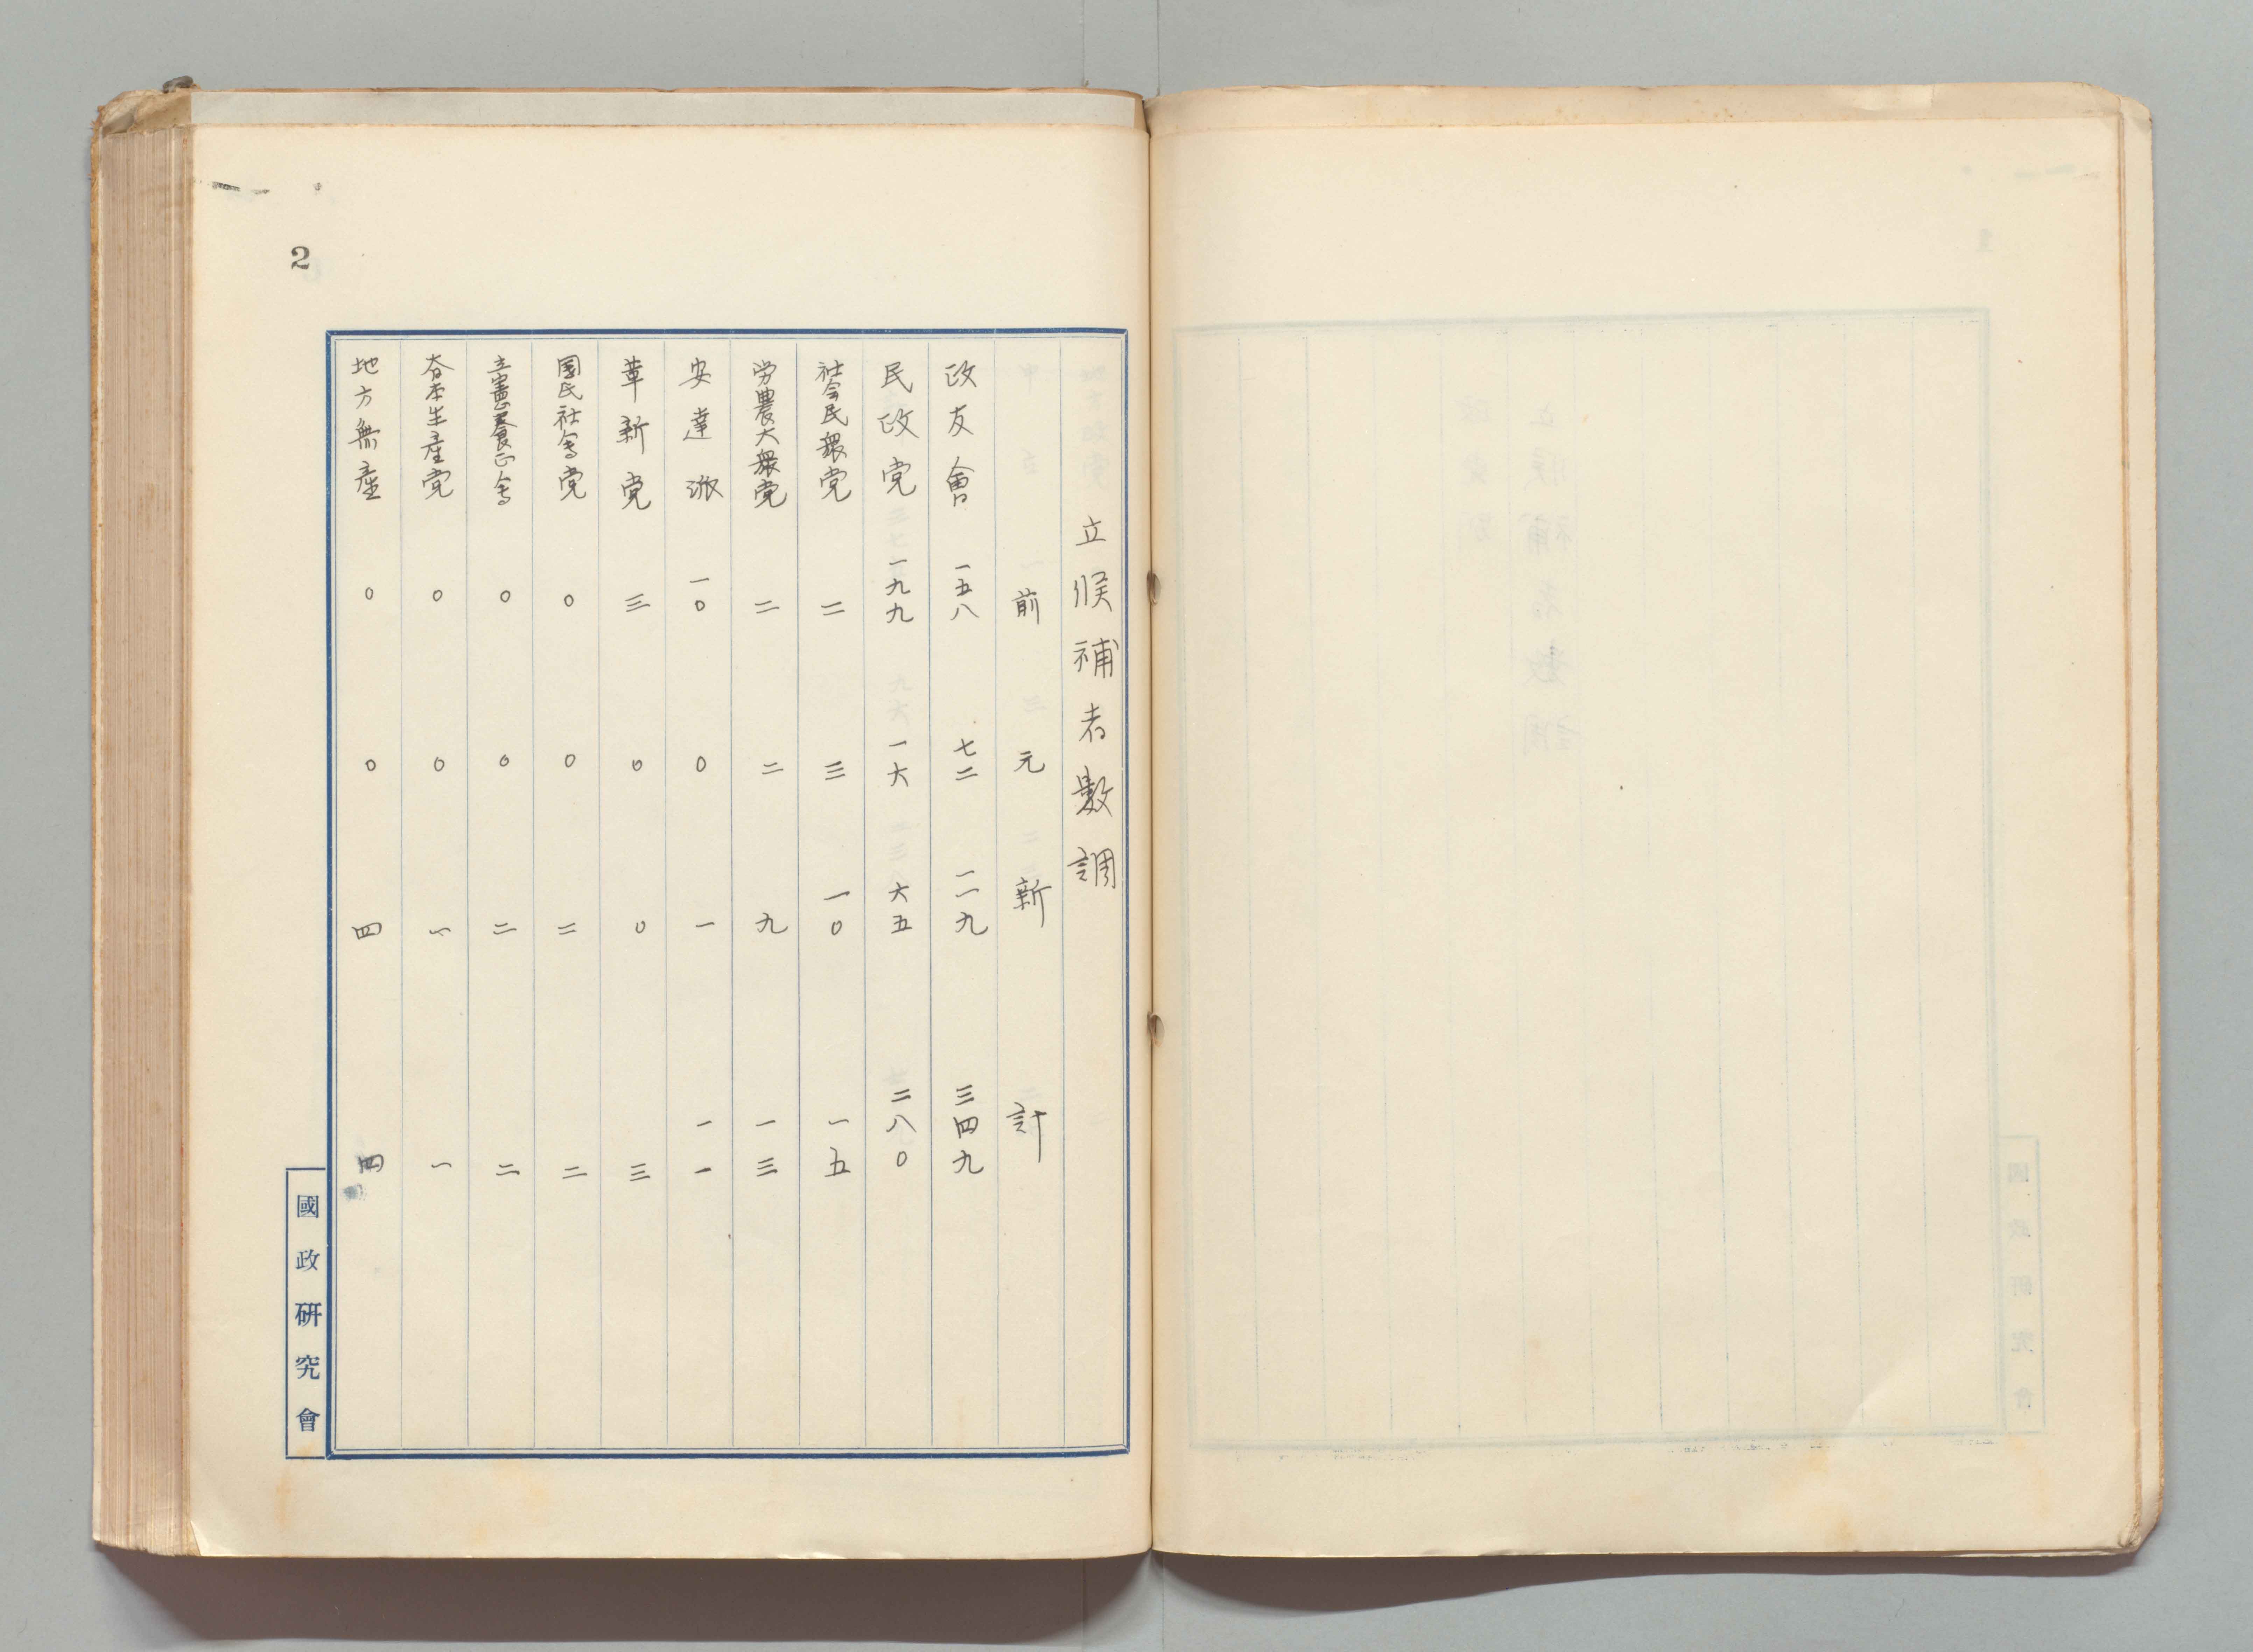 2
立候補者数調
前 元 新 計
政友會 一五八 七二 一一九 三四九
民政党 一九九 一六 六五 二八〇
社会民衆党 二 三 一〇 一五
労農大衆党 二 二 九 一三
安達派 一〇 〇 一 一一
革新党 三 〇 〇 三
國民社會党 〇 〇 二 二
立憲養正會 〇 〇 二 二
大日本生産党 〇 〇 一 一
地方無産 〇 〇 四 四
國政研究會